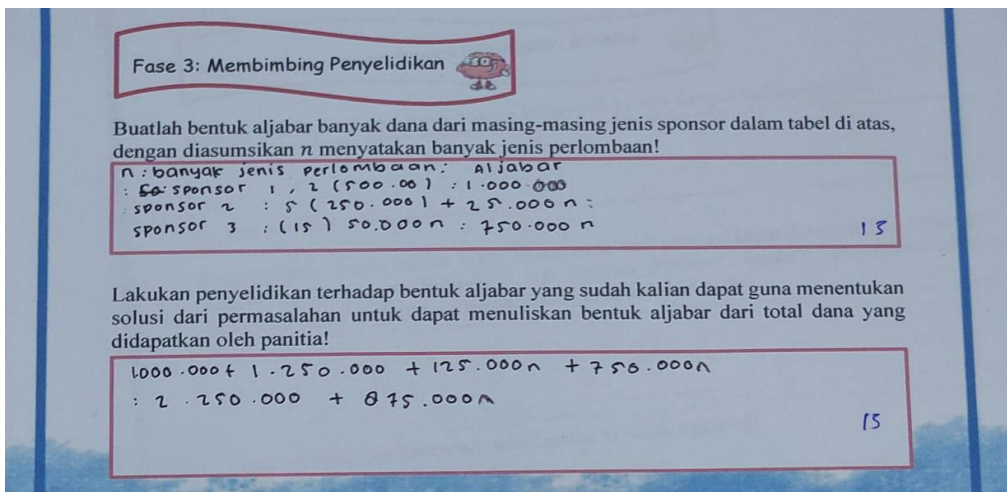 Fase 3: Membimbing Penyelidikan
Buatlah bentuk aljabar banyak dana dari masing-masing jenis sponsor dalam tabel di atas,
dengan diasumsikan n menyatakan banyak jenis perlombaan!
n : banyak jenis perlombaan : Aljabar
: sponsor 1 , 2 (500.00) : 1.000.000
: sponsor 2 : 5 (250.000) + 25.000n :
sponsor 3 : (15) 50.000n : 750.000n
15
Lakukan penyelidikan terhadap bentuk aljabar yang sudah kalian dapat guna menentukan
solusi dari permasalahan untuk dapat menuliskan bentuk aljabar dari total dana yang
didapatkan oleh panitia!
1.000.000 + 1.250.000 + 125.000n + 750.000n
: 2.250.000 + 875.000n
15